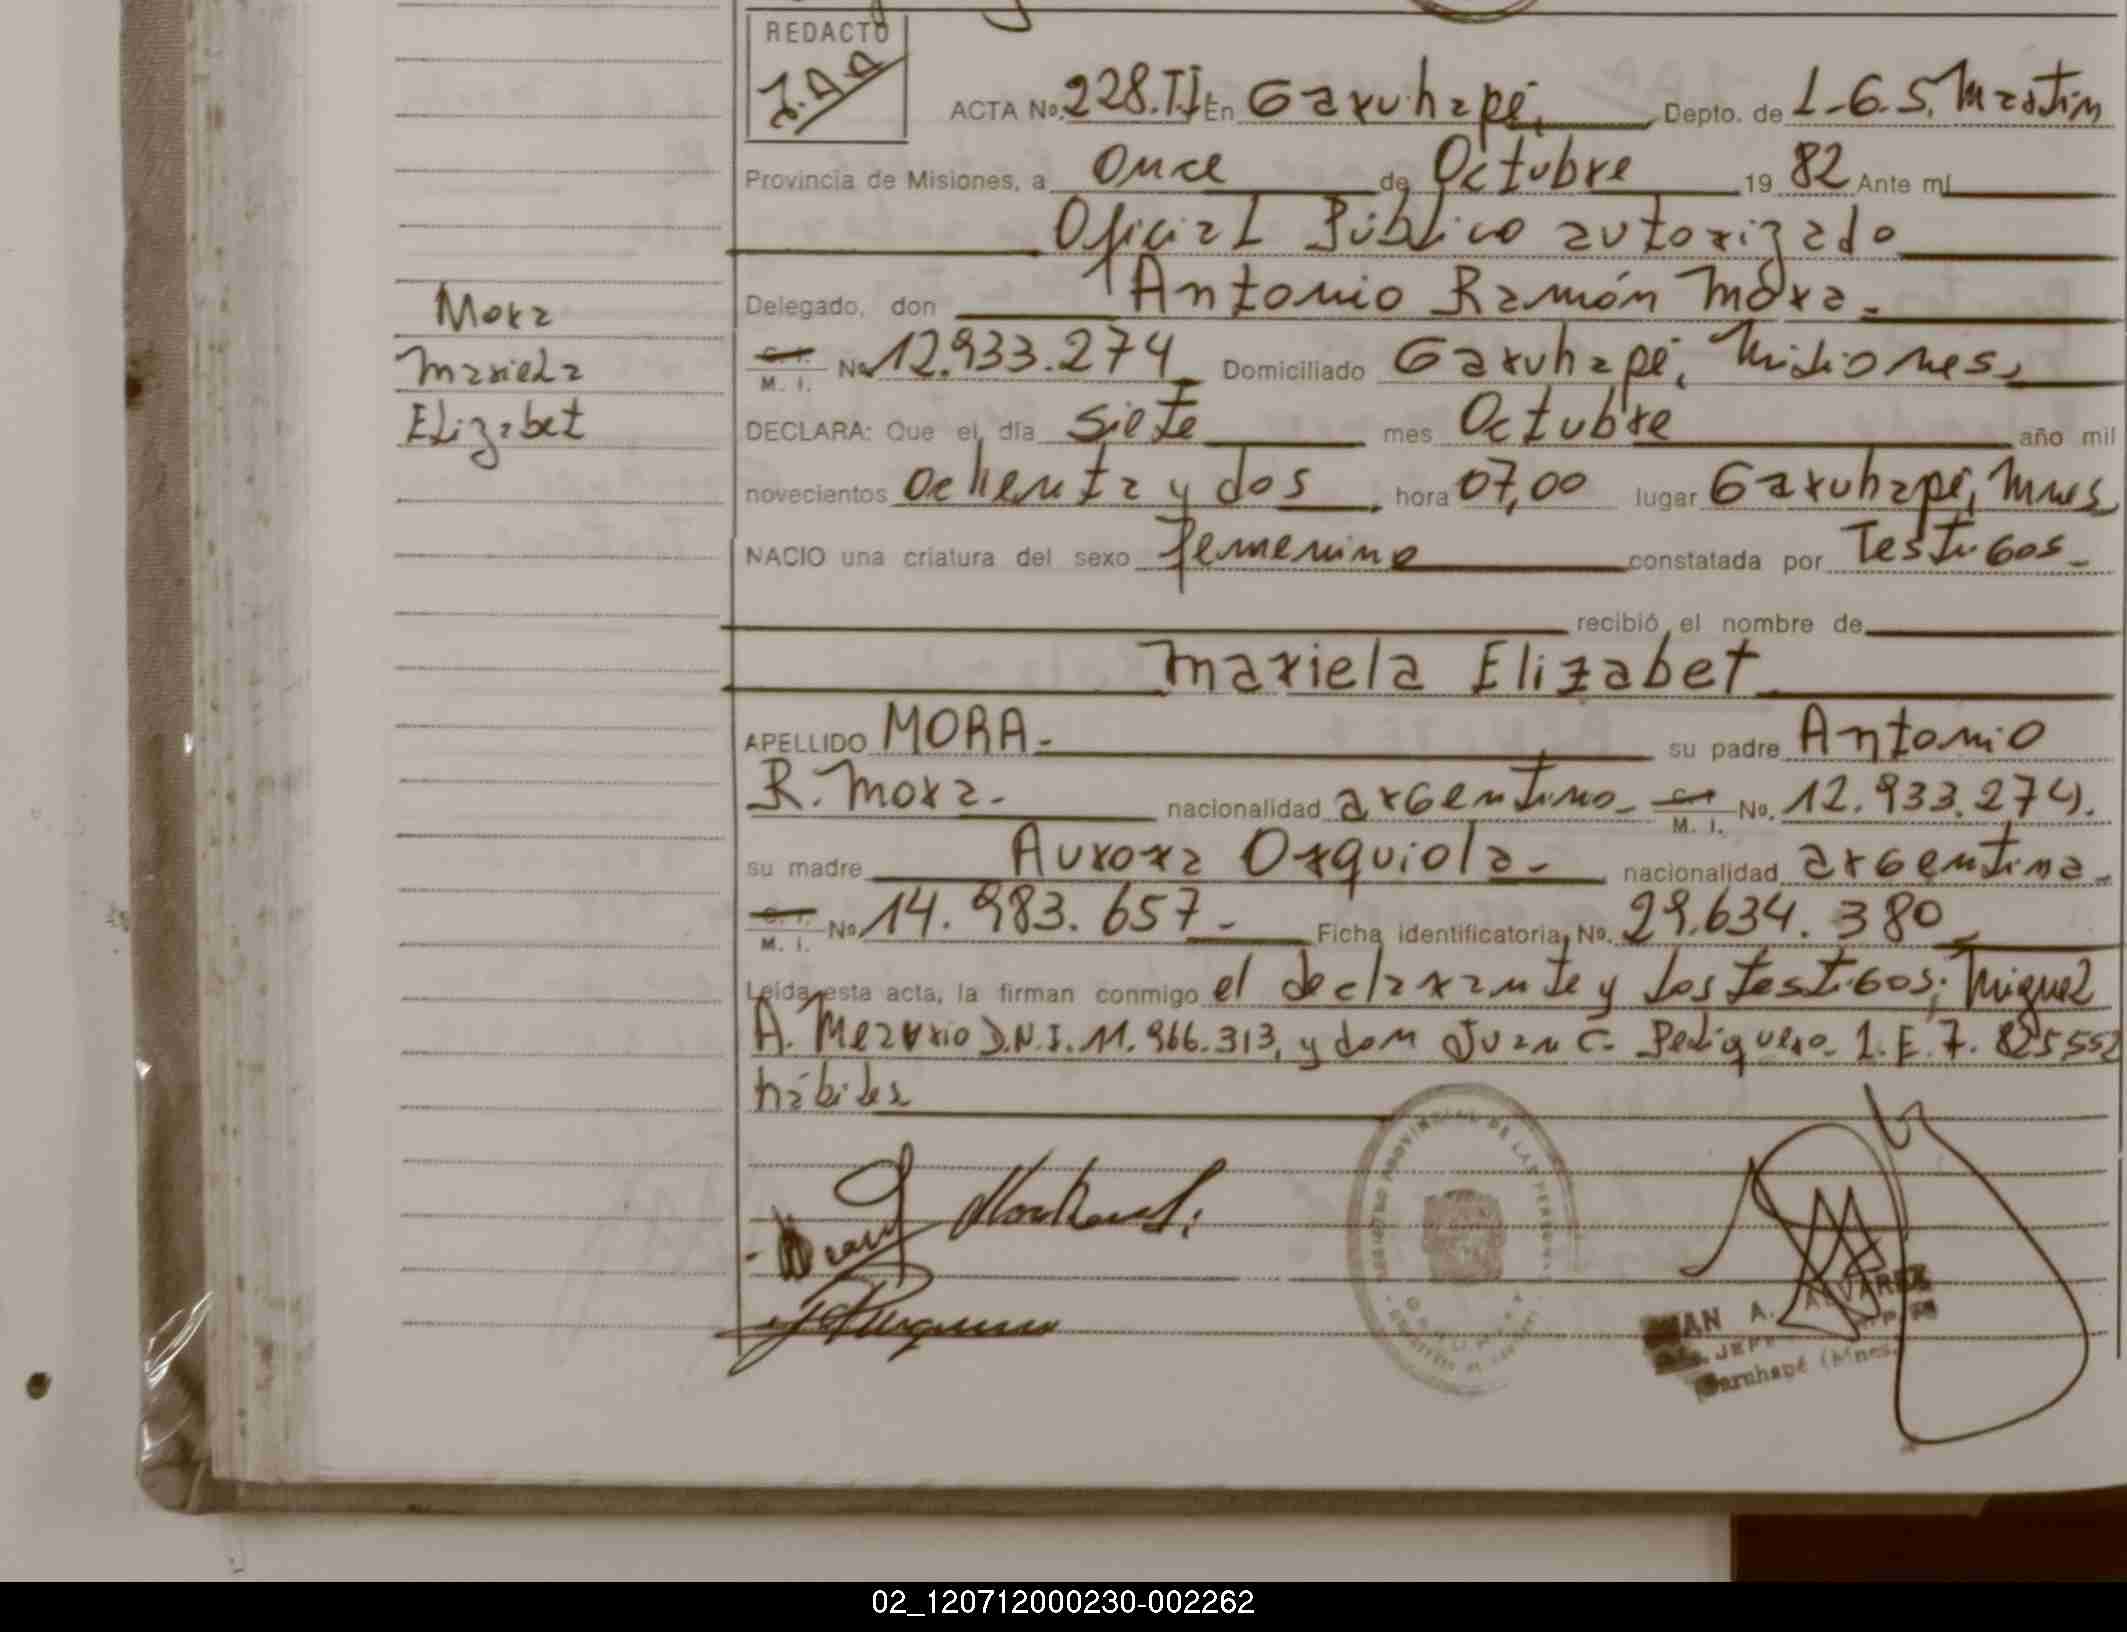 REDACTO
J.A.A
ACTA No. 228.T.I En Garuhapé, Depto. de L.G.S. Martin
Provincia de Misiones, a Once de Octubre 19 82 Ante mí
Oficial Público autorizado
Mora
Delegado, don Antonio Ramón Mora.
Mariela
C. I. M. I. No 12.933.274 Domiciliado Garuhapé, Misiones,
Elizabet
DECLARA: Que el día siete mes Octubre año mil
novecientos ochenta y dos, hora 07,00 lugar Garuhapé, Mnes,
NACIO una criatura del sexo femenino constatada por Testigos-
recibió el nombre de
Mariela Elizabet
APELLIDO MORA- su padre Antonio
R. Mora- nacionalidad argentino- C. I. M. I. No. 12.933.274.
su madre Aurora Orquiola- nacionalidad argentina-
C. I. M. I. No 14.983.657- Ficha identificatoria, No. 29.634.380-
Leída esta acta, la firman conmigo el declarante y los testigos; Miguel
A. D.N.I. 11.966.313, y don Juan C. L.E. 7.825552
hábiles
REGISTRO PROVINCIAL DE LAS PERSONAS
JUAN A. ALVAREZ
JEFE
Garuhapé (Mnes.
02_120712000230-002262